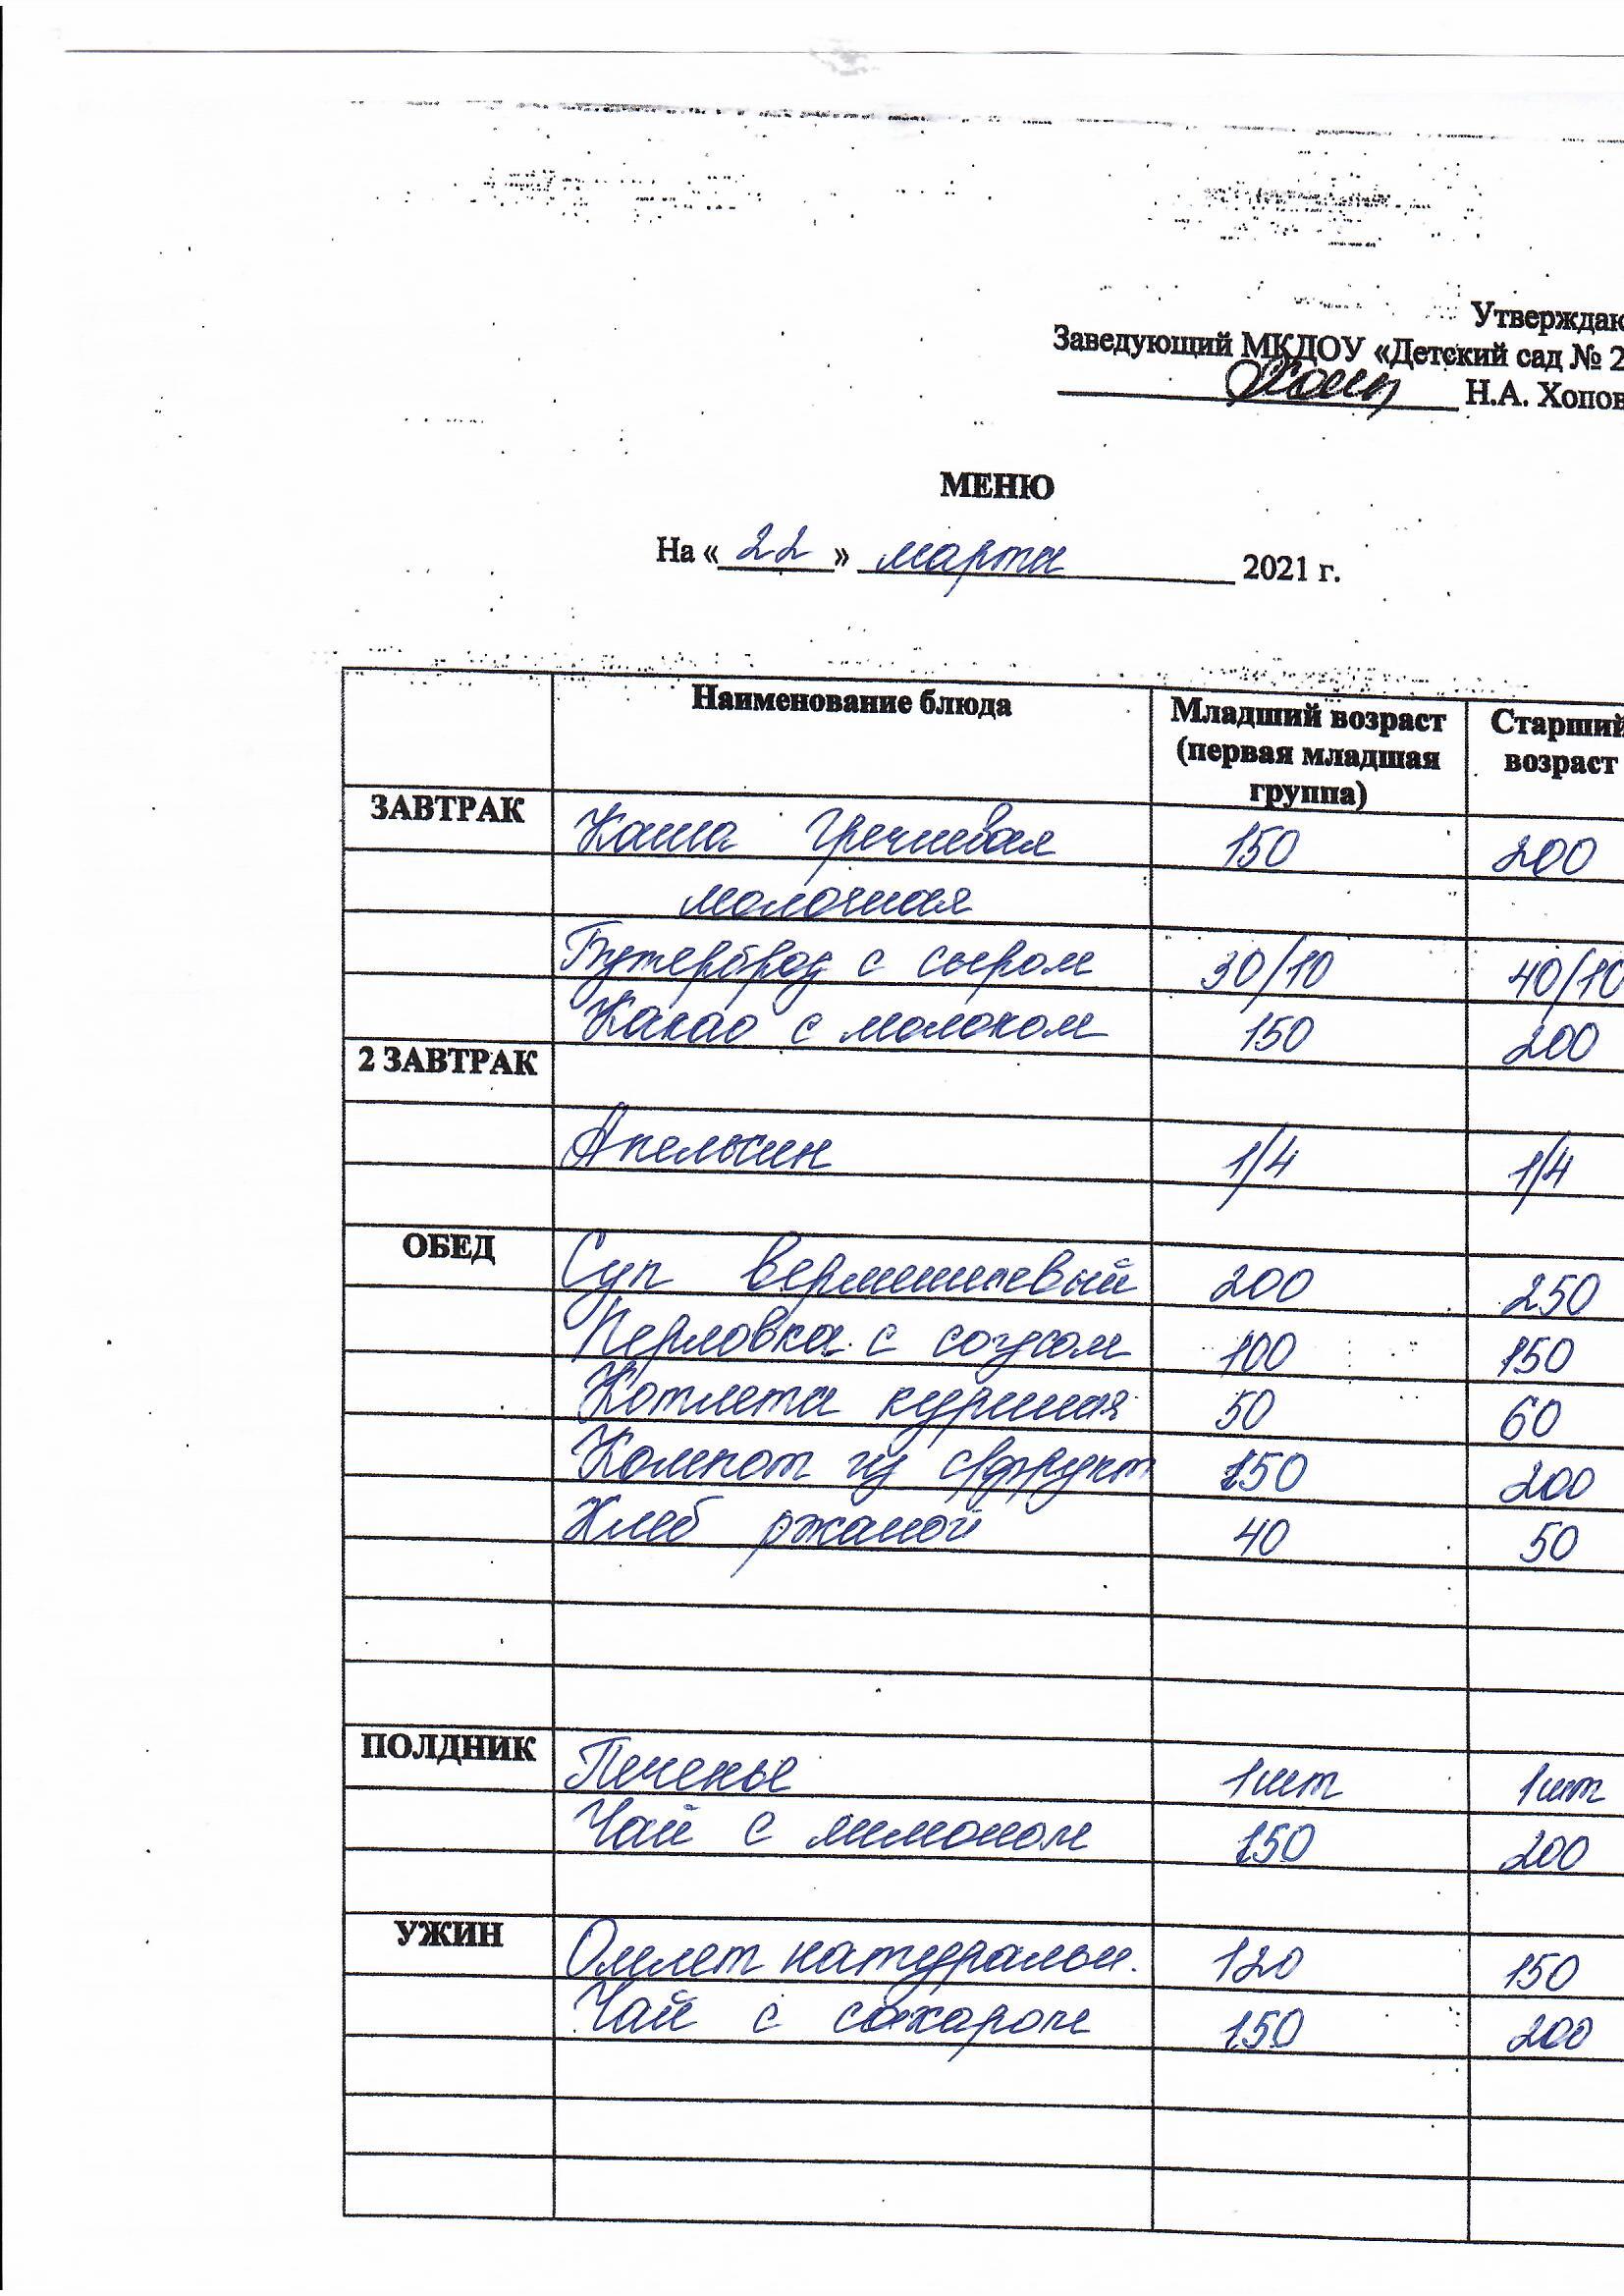 Утверждаю
Заведующий МКДОУ «Детский сад № 2
Н.А. Хопов
МЕНЮ
На « 22 » марта 2021 г.
Наименование блюда Младший возраст (первая младшая группа) Старший возраст
ЗАВТРАК Каша гречневая 150 200
молочная
Бутерброд с сыром 30/10 40/10
Какао с молоком 150 200
2 ЗАВТРАК
Апельсин 1/4 1/4
ОБЕД Суп вермишелевый 200 250
Перловка с соусом 100 150
Котлета куриная 50 60
Компот из с/фрукт 150 200
Хлеб ржаной 40 50
ПОЛДНИК Печенье 1шт 1шт
Чай с лимоном 150 200
УЖИН Омлет натуральн. 120 150
Чай с сахаром 150 200